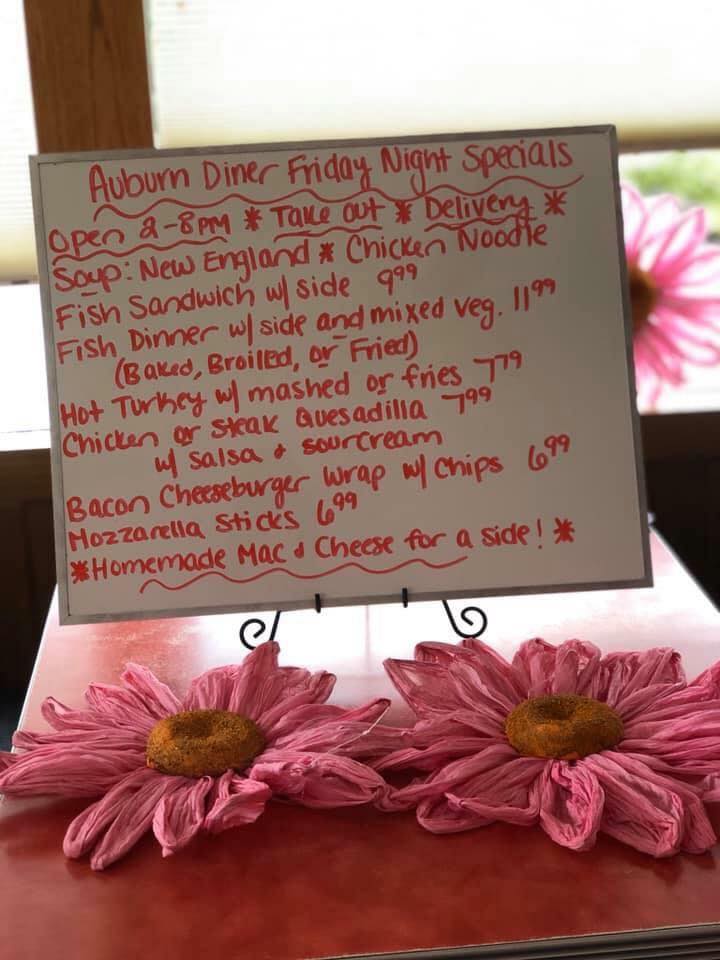 Auburn Diner Friday Night Specials
Open 2-8PM * Take Out * Delivery *
Soup: New England * Chicken Noodle
Fish Sandwich w/ side 9.99
Fish Dinner w/ side and mixed veg. 11.99
(Baked, Broiled, or Fried)
Hot Turkey w/ mashed or fries 7.79
Chicken or Steak Quesadilla 7.99
w/ salsa & sourcream
Bacon Cheeseburger Wrap w/ Chips 6.99
Mozzarella Sticks 6.99
*Homemade Mac & Cheese for a side! *